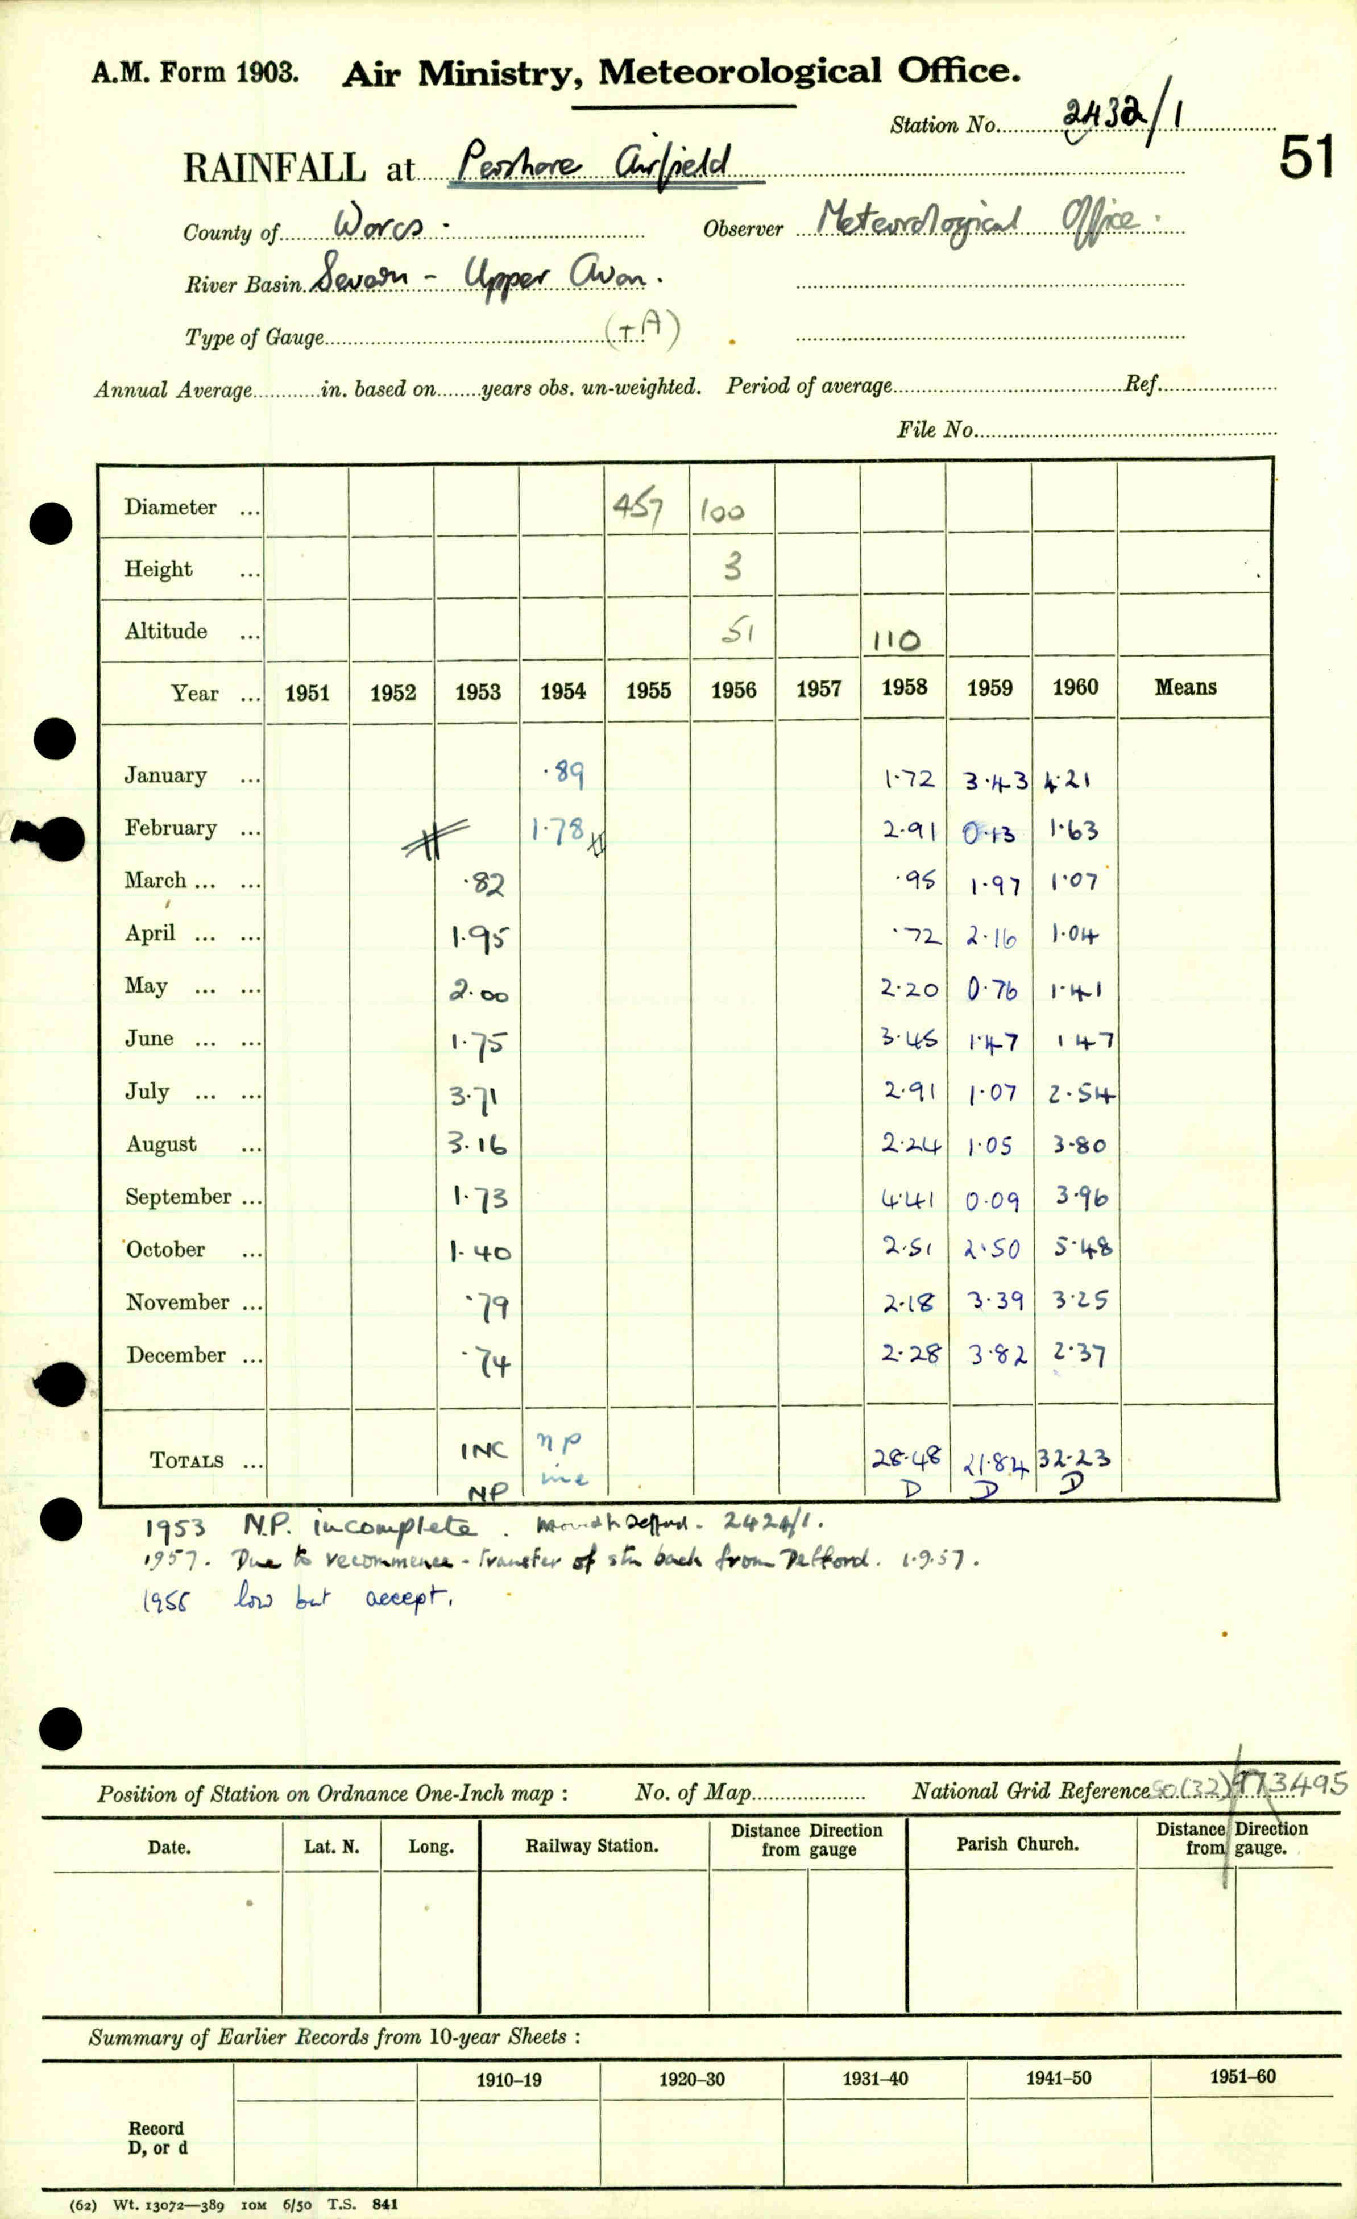 A.M. Form 1903. Air Ministry, Meteorological Office.
Station No. 2432/1
51
RAINFALL at Pershore Airfield
County of Worcs. Observer Meteorological Office.
River Basin Severn - Upper Avon.
Type of Gauge (TA)
Annual Average in. based on years obs. un-weighted. Period of average Ref.
File No.
Diameter ... 457 100
Height ... 3
Altitude ... 51 110
Year ... 1951 1952 1953 1954 1955 1956 1957 1958 1959 1960 Means
January ... ·89 1·72 3·43 4·21
February ... 1·78 2·91 0·13 1·63
March ... ... ·82 ·95 1·97 1·07
April ... ... 1·95 ·72 2·16 1·04
May ... ... 2·00 2·20 0·76 1·41
June ... ... 1·75 3·45 1·47 1 47
July ... ... 3·71 2·91 1·07 2·54
August ... 3·16 2·24 1·05 3·80
September ... 1·73 4·41 0·09 3·96
October ... 1·40 2·51 2·50 5·48
November ... ·79 2·18 3·39 3·25
December ... ·74 2·28 3·82 2·37
TOTALS ... INC NP 28·48 21·84 32·23
NP inc D D D
1953 N.P. incomplete. Moved to Defford. 2424/1.
1957. Due to recommence - transfer of stn back from Defford. 1.9.57.
1958 low but accept.
Position of Station on Ordnance One-Inch map : No. of Map National Grid Reference SO(32) 973495
Date. Lat. N. Long. Railway Station. Distance Direction from gauge Parish Church. Distance Direction from gauge.
Summary of Earlier Records from 10-year Sheets :
1910–19 1920–30 1931–40 1941–50 1951–60
Record
D, or d
(62) Wt. 13072—389 10M 6/50 T.S. 841